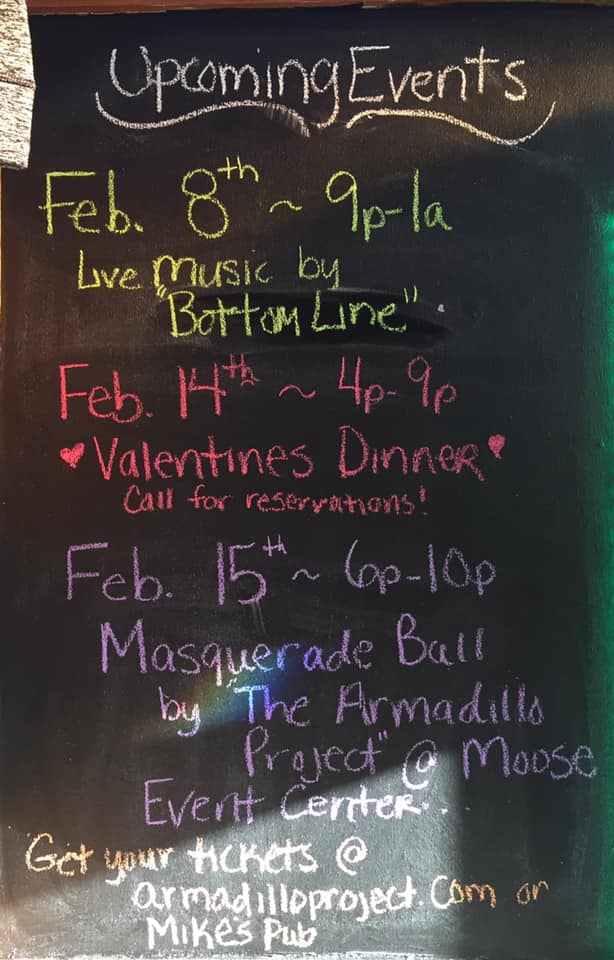 Upcoming Events
Feb. 8th ~ 9p-1a
Live Music by
"Bottom Line"
Feb. 14th ~ 4p-9p
♥ Valentines Dinner ♥
Call for reservations!
Feb. 15th ~ 6p-10p
Masquerade Ball
by "The Armadillo
Project" @ Moose
Event Center..
Get your tickets @
armadilloproject.com or
Mikes Pub